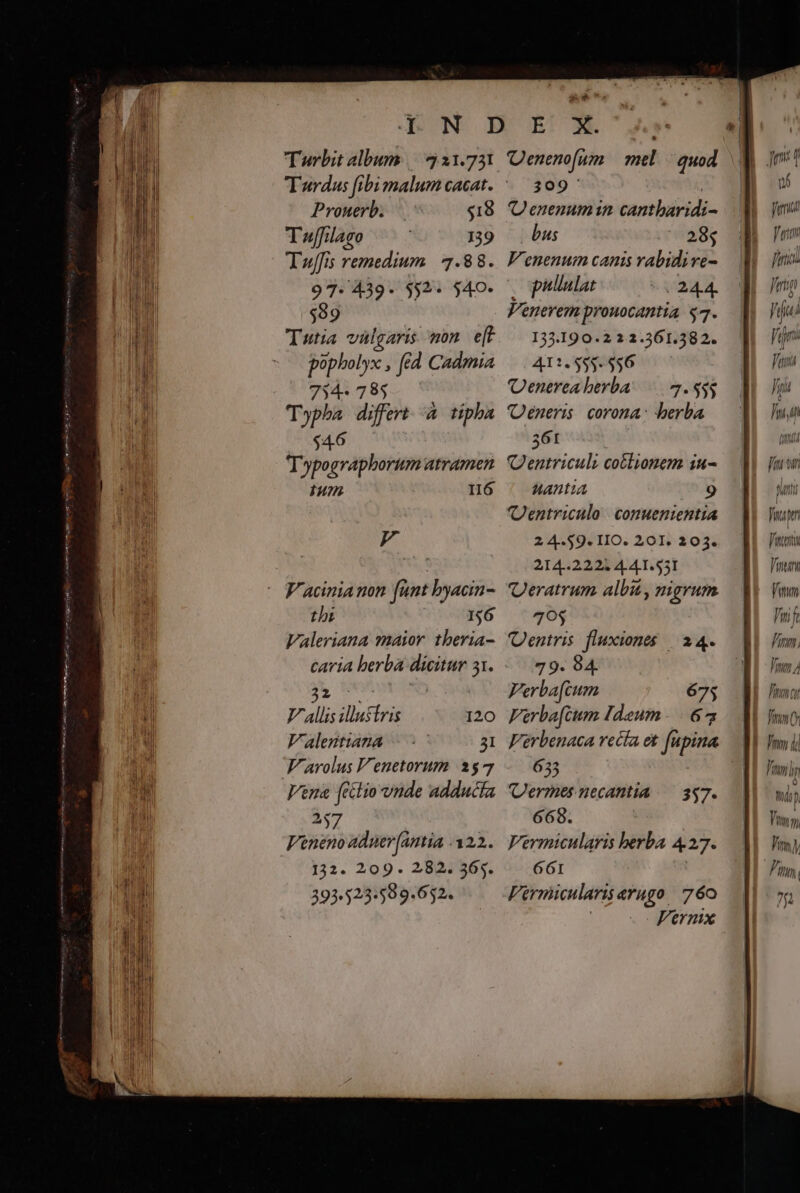 INDEX.
Turbit album 721.731
Turdus ſibi malum cacat.
Prouerb. 518
Tuſſilago 139
Tuſſis remedium 7.88.
97. 439. 552. 540.
589
Tutia vulgaris non eſt
popholyx, ſed Cadmia
754. 785
Typha differt à tipha
546
Typographorum atramen
tum 116
V
Vacinia non ſunt hyacin-
thi 156
Valeriana maior theria-
caria herba dicitur 31.
32
Vallis illuſtris 120
Valentiana 31
Varolus Venetorum 257
Venæ ſectio vnde adducta
257
Veneno aduerſantia 122.
132. 209. 282. 365.
393.523.589.652.
Venenoſum mel quod
309
Venenum in cantharidi-
bus 285
Venenum canis rabidi re-
pullulat 244
Venerem prouocantia 57.
133.190.222.361.382.
411.555.556
Venerea herba 7.555
Veneris corona herba
361
Ventriculi coctionem iu-
uantia 9
Ventriculo conuenientia
24.59.110.201.203.
214.222.441.531
Veratrum albũ, nigrum
705
Ventris fluxiones 24.
79.84
Verbaſcum 675
Verbaſcum Idæum 67
Verbenaca recta et ſupina
633
Vermes necantia 357.
668.
Vermicularis herba 427.
661
Vermicularis ærugo 760
Vernix